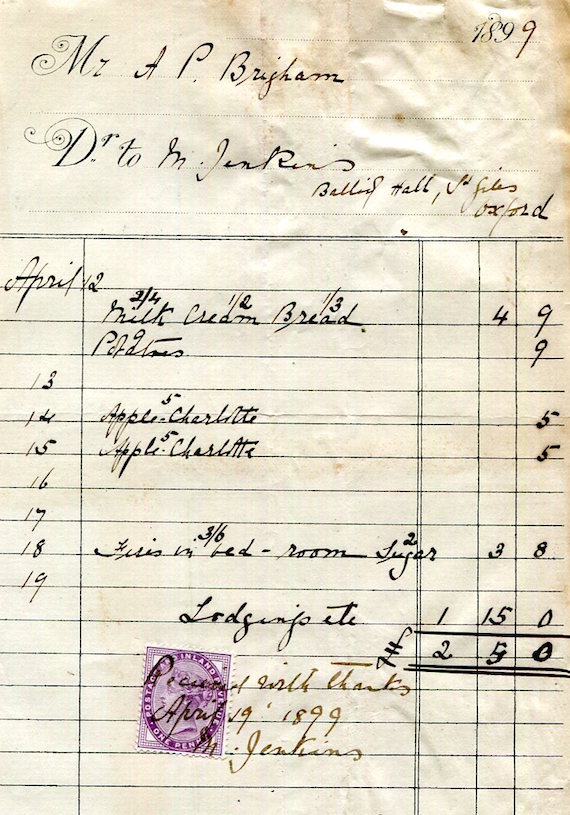 1899
Mr A P. Brigham
Dr to M. Jenkins
Balliol Hall, St Giles
Oxford
April 12
2/4 1/2 1/3
Milk Cream Bread 4 9
9
Potatoes 9
13
5
14 Apple-Charlotte 5
5
15 Apple-Charlotte 5
16
17
3/6 2
18 Fires in bed-room Sugar 3 8
19
Lodgings etc 1 15 0
2 5 0
Received with thanks
April 19 1899
M. Jenkins
POSTAGE & INLAND REVENUE
ONE PENNY